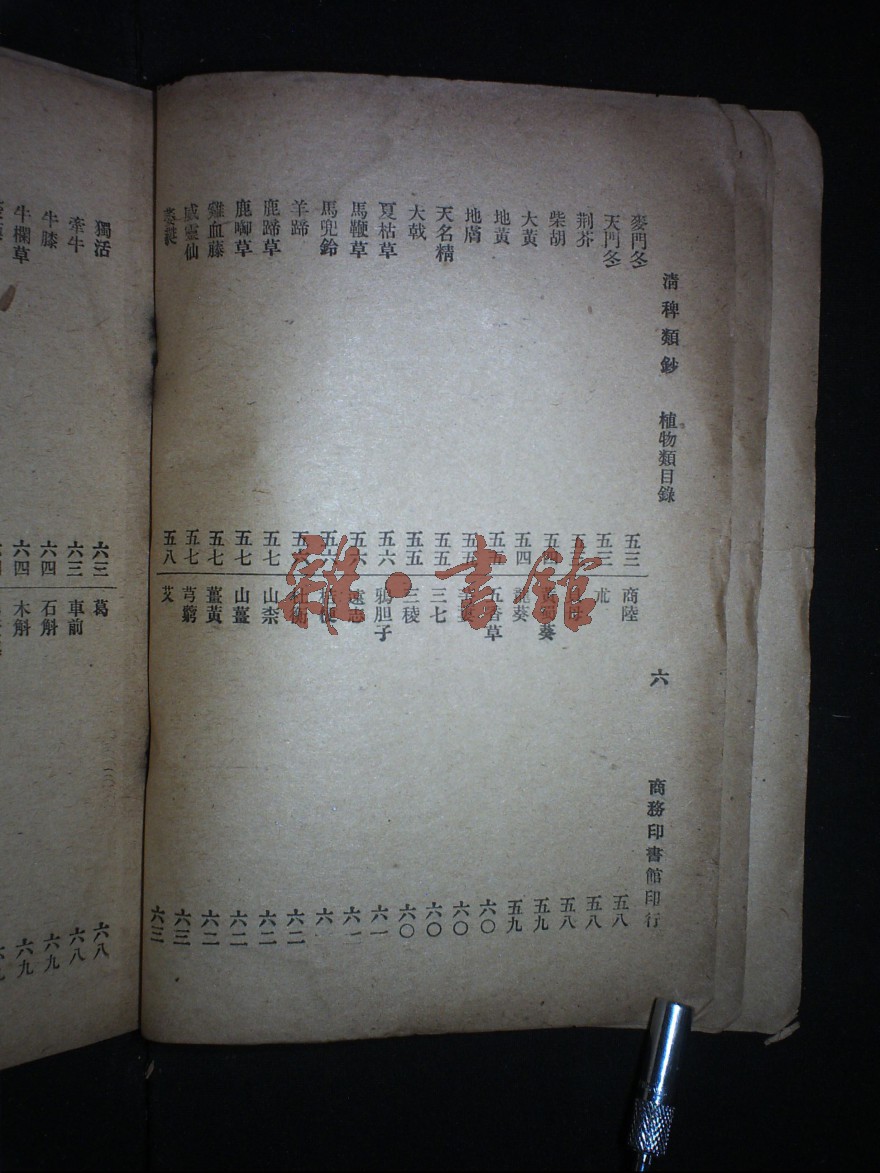 清稗類鈔 植物類目錄 六 商務印書館印行
麥門冬 五三
天門冬 五三
荆芥
柴胡 五四
大黃 五四
地黃 五五
地膚 五五
天名精 五五
大戟 五五
夏枯草 五六
馬鞭草 五六
馬兜鈴 五六
羊蹄 五六
鹿蹄草 五七
鹿啣草 五七
雞血藤 五七
威靈仙 五七
五八
商陸 五八
朮 五八
五八
葵 五九
龍葵 五九
五香草 六〇
六〇
三七 六〇
三稜 六〇
鴉胆子 六一
遠志 六一
桔梗 六
杜衡 六二
山柰 六二
山薑 六二
薑黃 六二
芎藭 六三
艾 六三
獨活 六三
牽牛 六三
牛膝 六四
牛欄草 六四
葛 六八
車前 六八
石斛 六九
木斛 六九
雜·書館